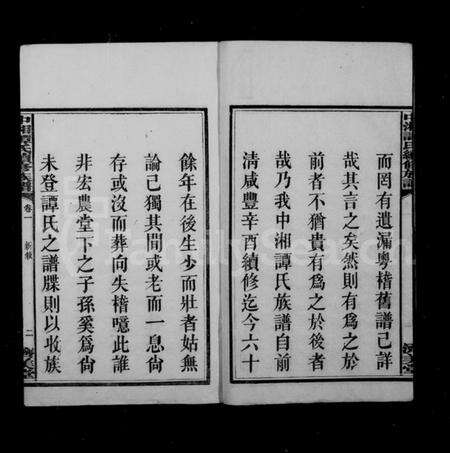 而罔有遺漏粵稽舊譜已詳
哉其言之矣然則有為之於
前者不猶貴有為之於後者
哉乃我中湘譚氏族譜自前
清咸豐辛酉續修迄今六十
餘年在後生少而壯者姑無
論已獨其間或老而一息尙
存或沒而葬向失稽噫此誰
非宏農堂下之子孫奚爲尙
未登譚氏之譜牒則以收族
中湘譚氏續修族譜
卷一
新敘
二
中湘譚氏續修族譜
FamilySearch